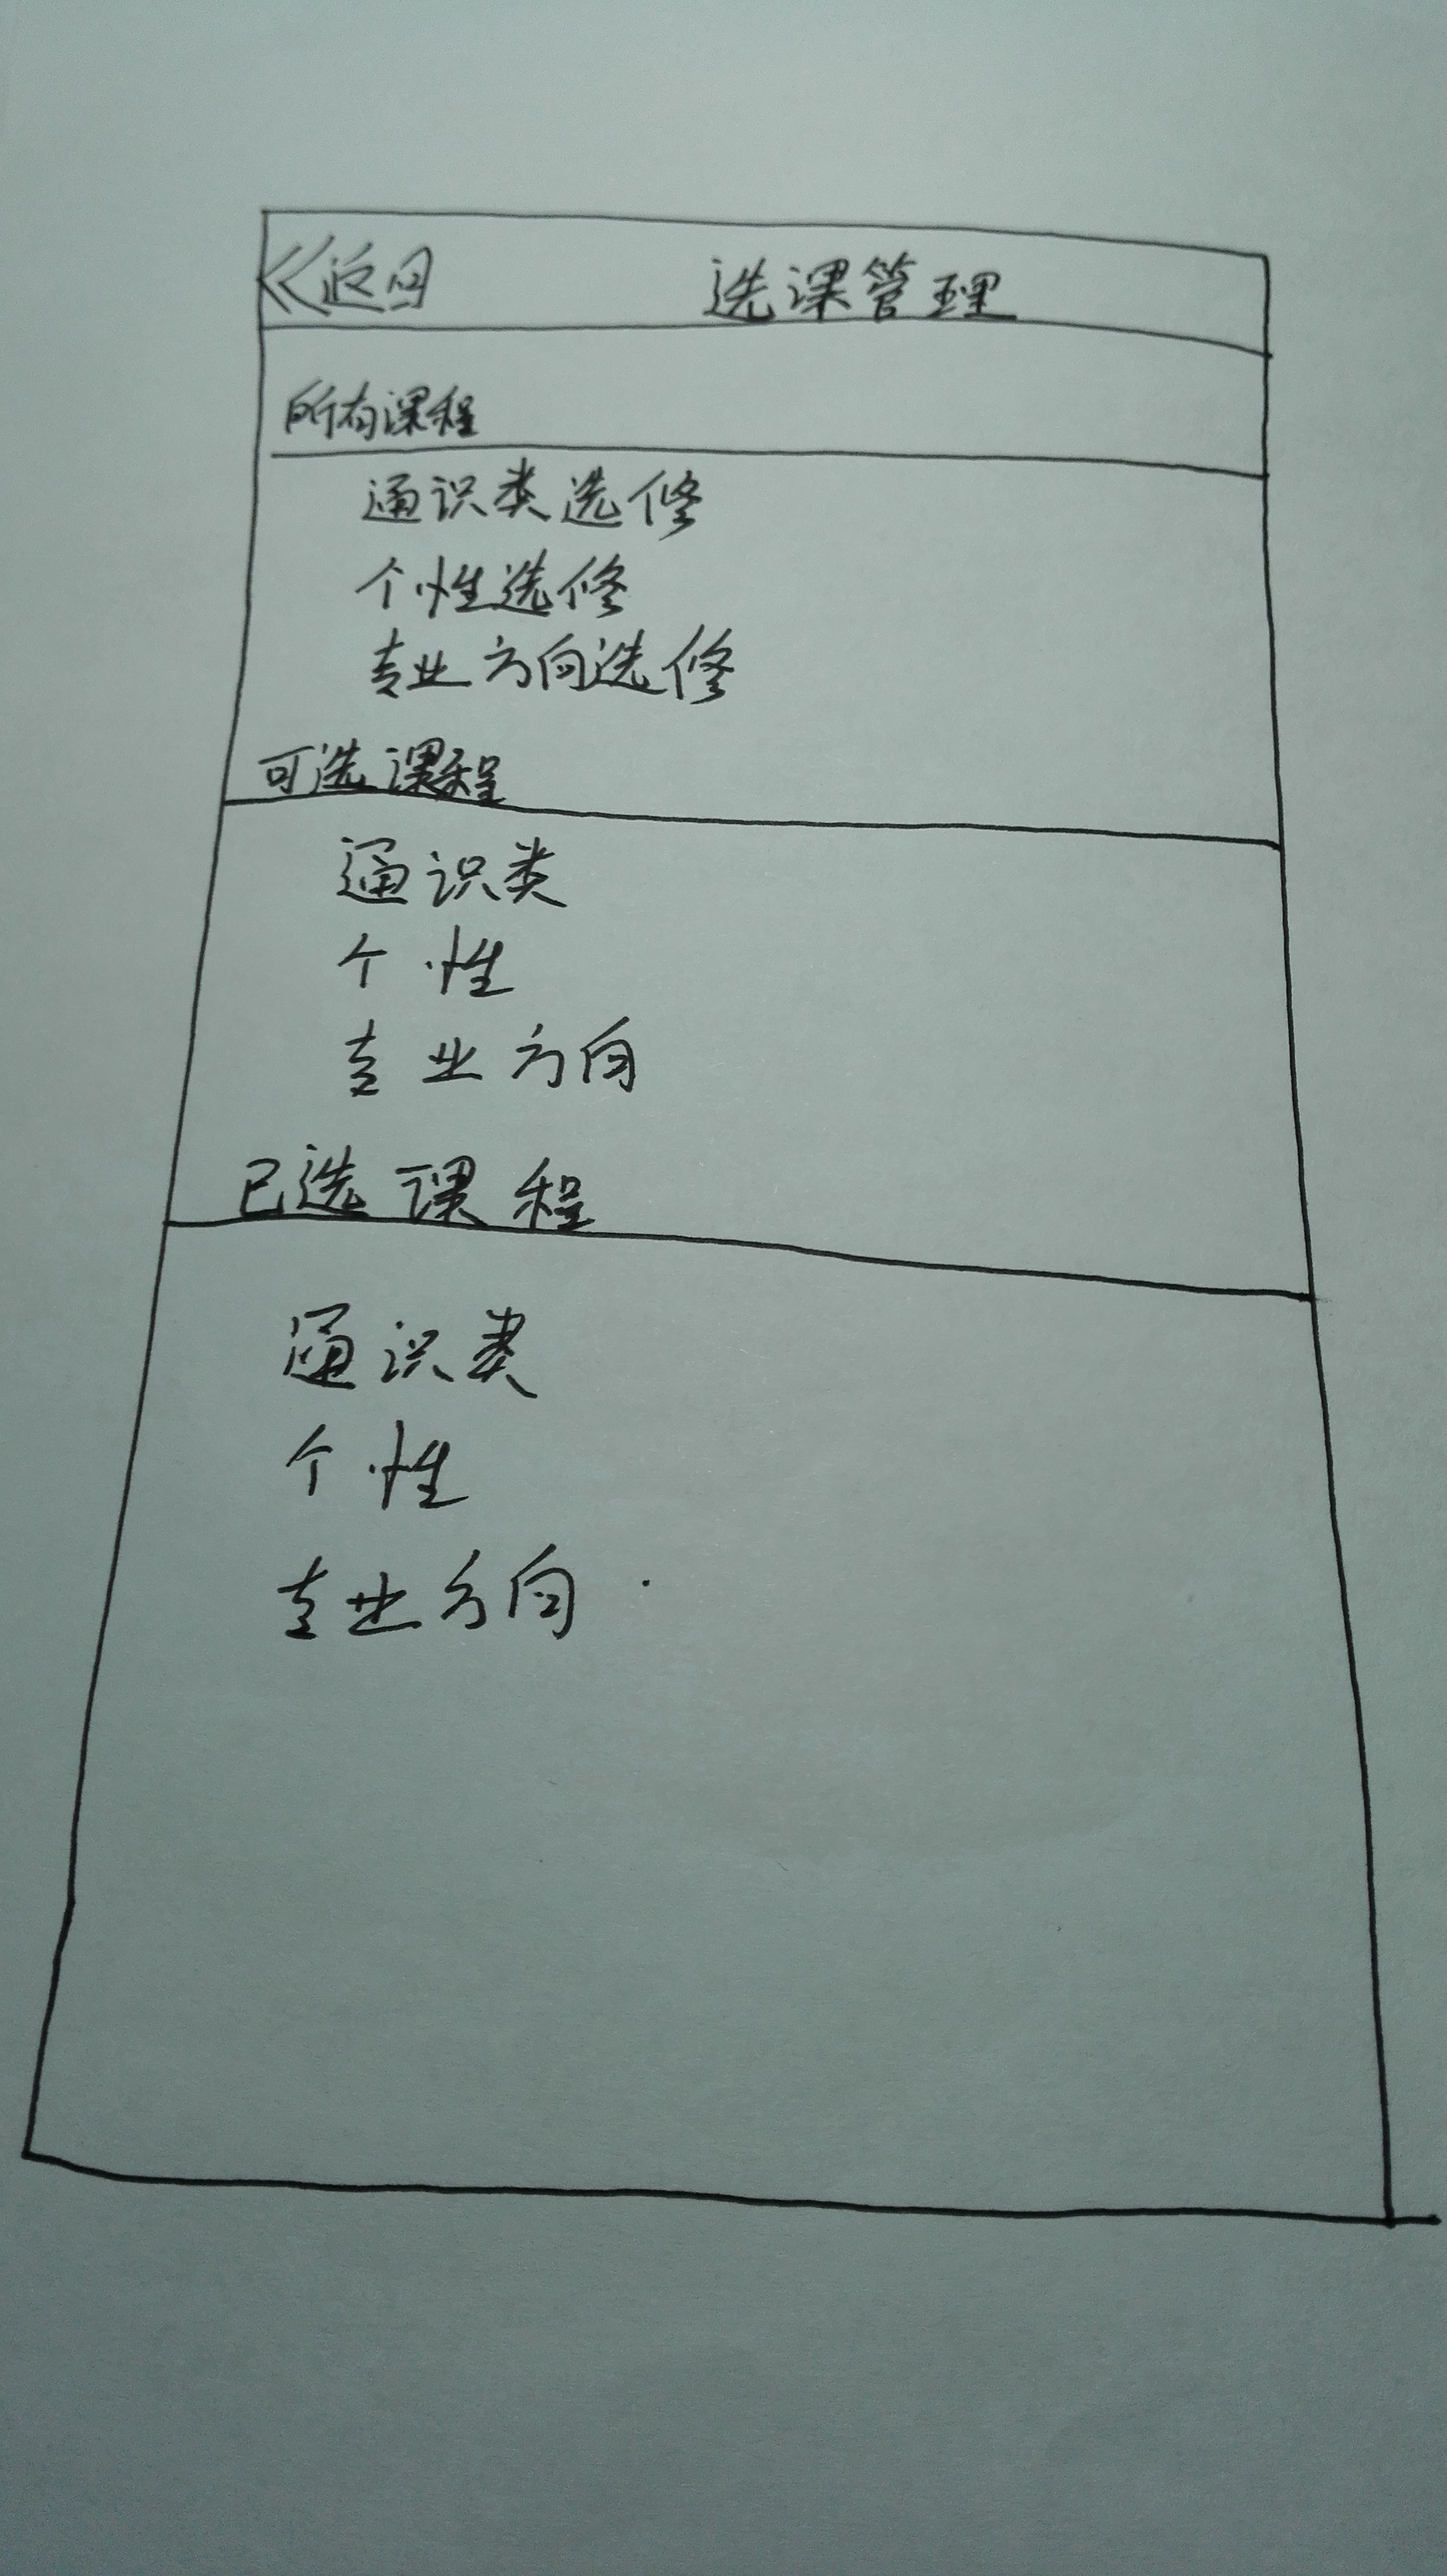 ≪返回 选课管理
所有课程
通识类选修
个性选修
专业方向选修
可选课程
通识类
个性
专业方向
已选课程
通识类
个性
专业方向